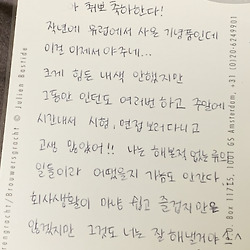 취뽀 축하한다!
작년에 유럽에서 사온 기념품인데
이건 이제서야 주네...
크게 힘든 내색 안했지만
그동안 인턴도 여러번 하고 주말에
시간내서 시험, 면접 보러다니고
고생 많았어!! 나는 해본적 없는 류의
일들이라 어땠을지 가늠도 안간다
회사생활이 마냥 쉽고 즐겁지만은
않겠지만 그것도 너는 잘 해낼거야
© Julien Bastide
PO Box 11715, 1001 GS Amsterdam, +31 (0)20-6249901